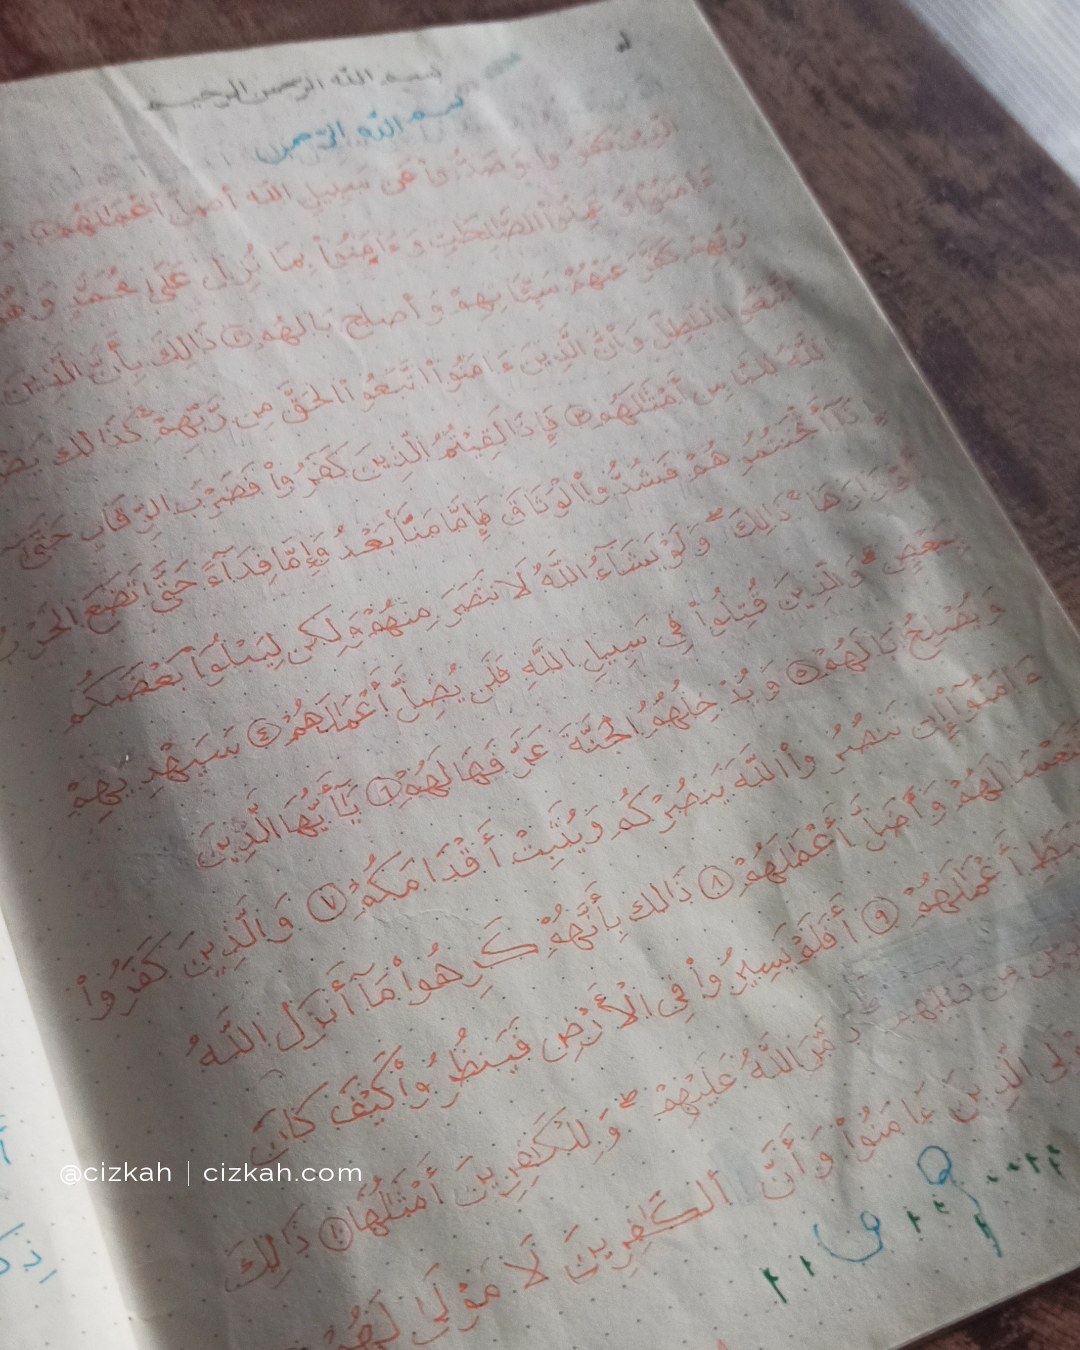 بسم الله الرحمن الرحيم
بسم الله الرحمن
الَّذِينَ كَفَرُوا وَصَدُّوا عَن سَبِيلِ اللَّه أَضَلَّ أَعْمَالَهُمْ ١
ءَامَنُوا وَعَمِلُوا الصَّالِحَاتِ وَءَامَنُوا بِمَا نُزِّلَ عَلَى مُحَمَّدٍ وَهُوَ
رَبِّهِمْ كَفَّرَ عَنْهُمْ سَيِّئَاتِهِمْ وَأَصْلَحَ بَالَهُمْ ٢ ذَالِكَ بِأَنَّ الَّذِينَ
اتَّبَعُوا الْبَاطِلَ وَأَنَّ الَّذِينَ ءَامَنُوا اتَّبَعُوا الْحَقَّ مِن رَّبِّهِمْ كَذَالِكَ
اللَّهُ لِلنَّاسِ أَمْثَالَهُمْ ٣ فَإِذَا لَقِيتُمُ الَّذِينَ كَفَرُوا فَضَرْبَ الرِّقَابِ حَتَّى
إِذَا أَثْخَنتُمُوهُمْ فَشُدُّوا الْوَثَاقَ فَإِمَّا مَنًّا بَعْدُ وَإِمَّا فِدَآءً حَتَّى تَضَعَ الْحَرْبُ
أَوْزَارَهَا ذَالِكَ وَلَوْ يَشَآءُ اللَّهُ لَانتَصَرَ مِنْهُمْ وَلَكِن لِّيَبْلُوَا بَعْضَكُم
بِبَعْضٍ وَالَّذِينَ قُتِلُوا فِي سَبِيلِ اللَّهِ فَلَن يُضِلَّ أَعْمَالَهُمْ ٤ سَيَهْدِيهِمْ
وَيُصْلِحُ بَالَهُمْ ٥ وَيُدْخِلُهُمُ الْجَنَّةَ عَرَّفَهَا لَهُمْ ٦ يَآأَيُّهَا الَّذِينَ
ءَامَنُوآ إِن تَنصُرُوا اللَّهَ يَنصُرْكُمْ وَيُثَبِّتْ أَقْدَامَكُمْ ٧ وَالَّذِينَ كَفَرُوا
فَتَعْسًا لَهُمْ وَأَضَلَّ أَعْمَالَهُمْ ٨ ذَالِكَ بِأَنَّهُمْ كَرِهُوا مَآ أَنزَلَ اللَّهُ
أَعْمَالَهُمْ ٩ أَفَلَمْ يَسِيرُوا فِي الْأَرْضِ فَيَنظُرُوا كَيْفَ كَانَ
مِن قَبْلِهِمْ دَمَّرَ اللَّهُ عَلَيْهِمْ وَلِلْكَافِرِينَ أَمْثَالُهَا ١٠ ذَالِكَ
الَّذِينَ ءَامَنُوا وَأَنَّ الْكَافِرِينَ لَا مَوْلَى لَهُمْ
@cizkah | cizkah.com